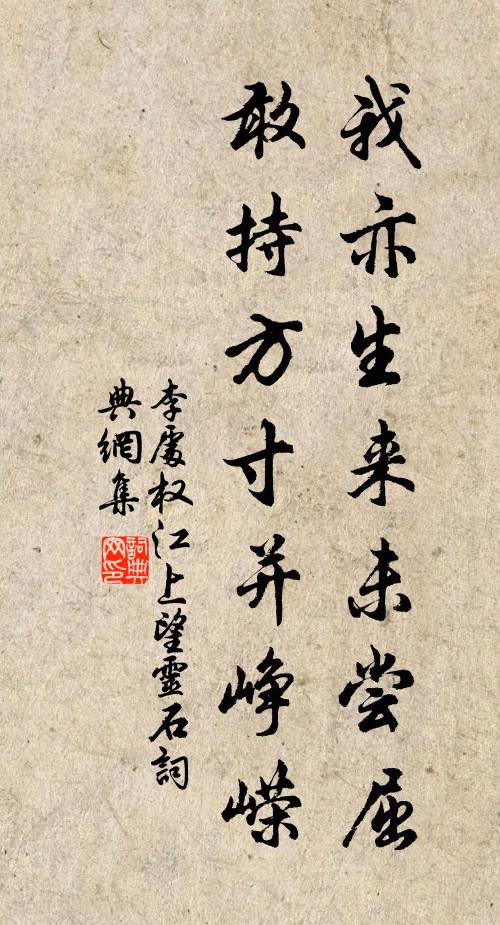 我亦生来未尝屈
敢持方寸并峥嵘
李處权江上望靈石詞
典網集
詞典
网印